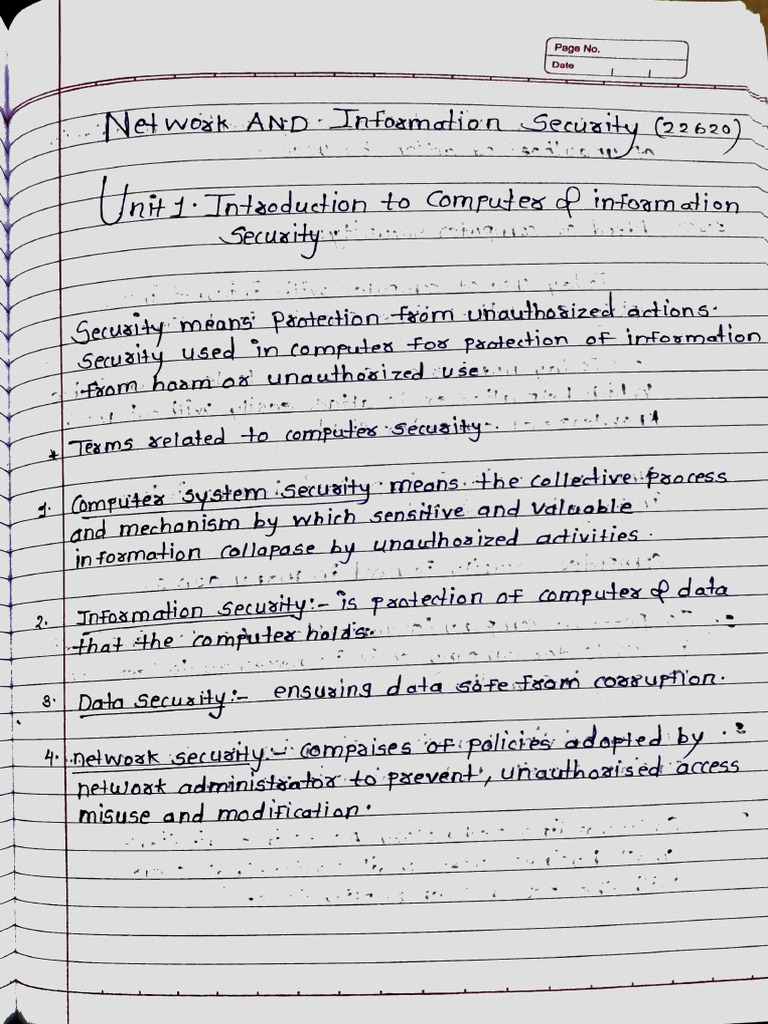 Page No.
Date
Network AND Information Security (22620)
Unit 1. Introduction to Computer & information
Security
Security means protection from unauthorized actions.
Security used in computer for protection of information
from harm or unauthorized use
* Terms related to computer security
1. Computer system security means the collective process
and mechanism by which sensitive and valuable
information collapase by unauthorized activities.
2. Information security:- is protection of computer & data
that the computer holds.
3. Data security:- ensuring data safe from corruption.
4. network security:- compaises of policies adopted by
network administrator to prevent, unauthorised access
misuse and modification.